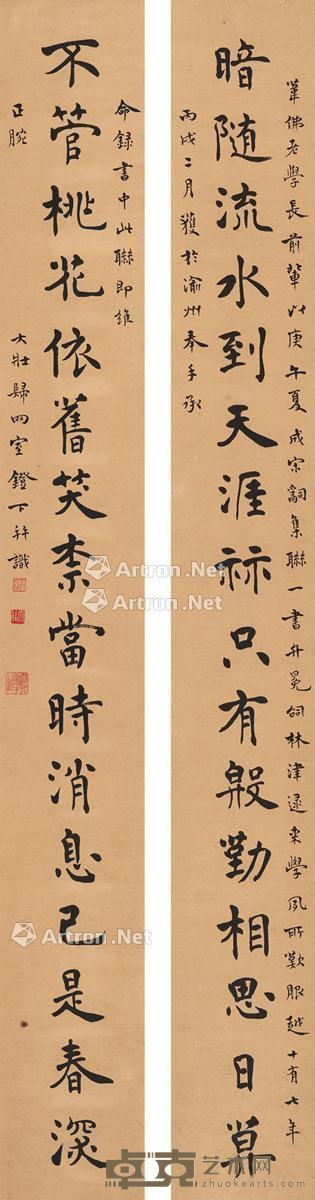 葦佛老學長前輩以庚午夏成宋詞集聯一書弁冕詞林津逮來學夙所歎服越十有七年
暗隨流水到天涯只有殷勤相思日暮
丙戌二月獲於渝州奉手承
命錄書中此聯即維
不管桃花依舊笑柰當時消息已是春深
正腕
大壯歸四室鐙下并識
Artron.Net
Artron.Net
Artron.Net
Artron.Net
Artron.Net
Artron.Net
卓克艺术网
www.zhuokearts.com